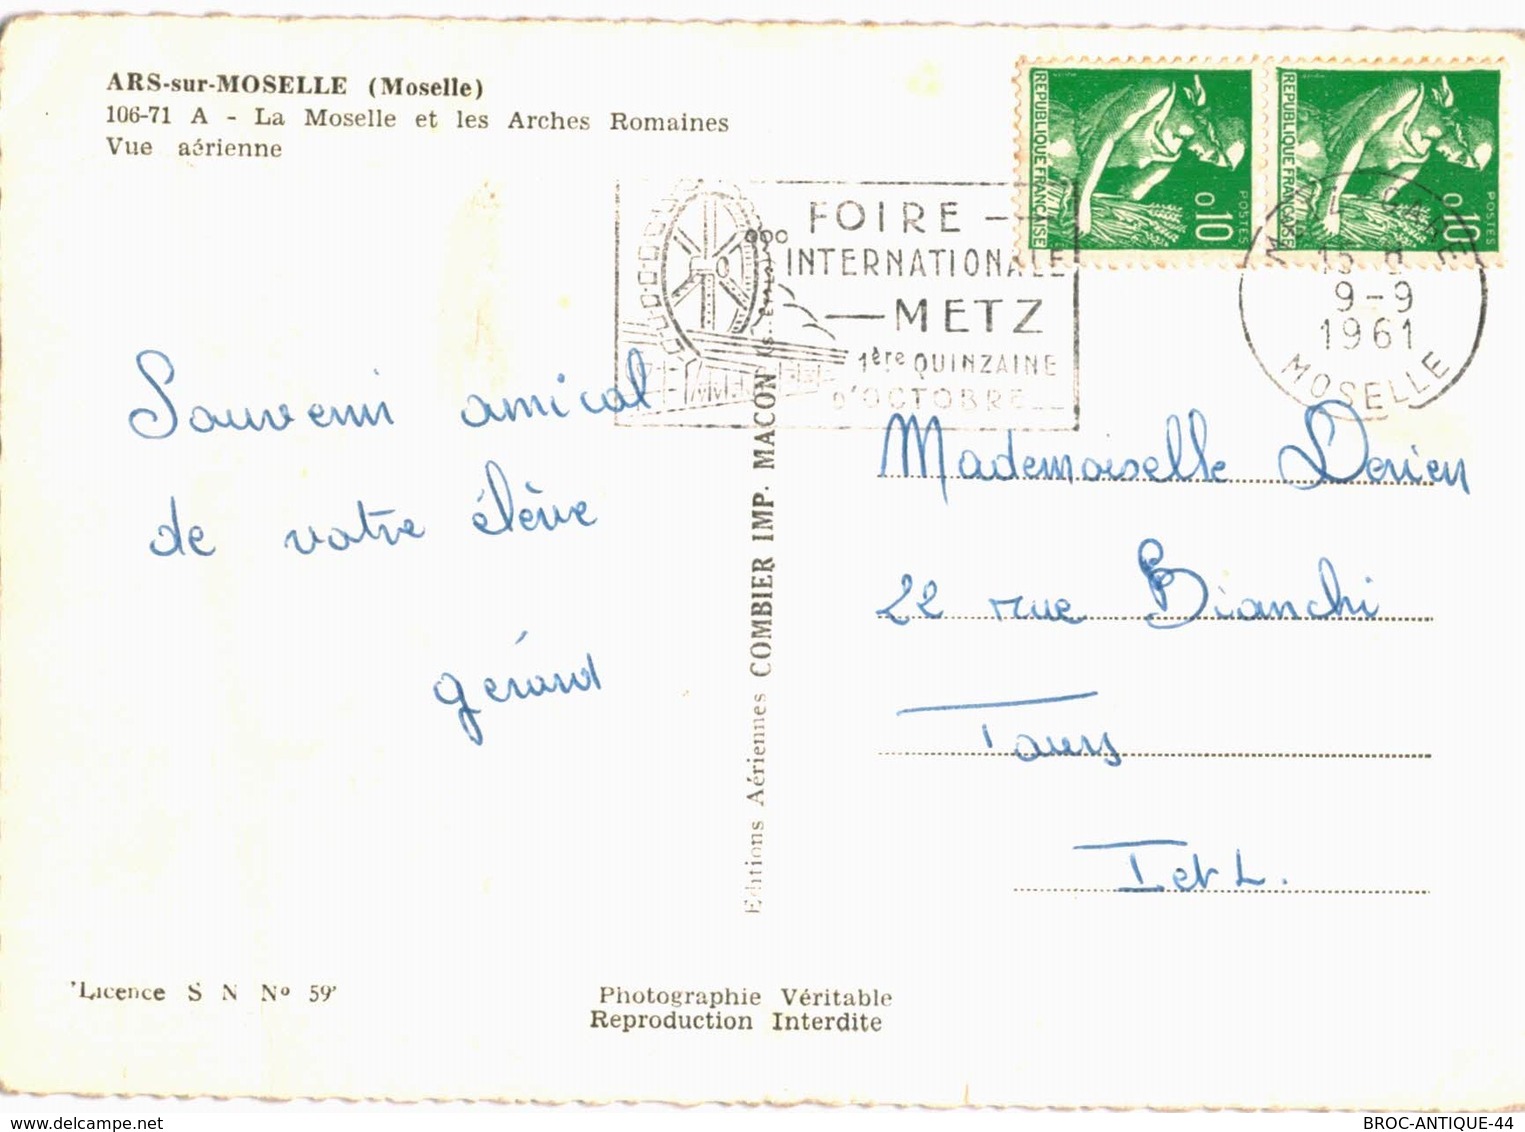 ARS-sur-MOSELLE (Moselle)
106-71 A - La Moselle et les Arches Romaines
Vue aérienne
REPUBLIQUE FRANÇAISE
0,10
POSTES
REPUBLIQUE FRANÇAISE
0,10
POSTES
FOIRE
INTERNATIONALE
METZ
1ère QUINZAINE
D'OCTOBRE
GARE
9-9
1961
MOSELLE
Souvenir amical
de votre élève
gérard
Editions Aériennes COMBIER IMP. MACON
Mademoiselle Dorien
22 rue Bianchi
Tours
I et L.
'Licence S N Nº 59'
Photographie Véritable
Reproduction Interdite
www.delcampe.net
BROC-ANTIQUE-44